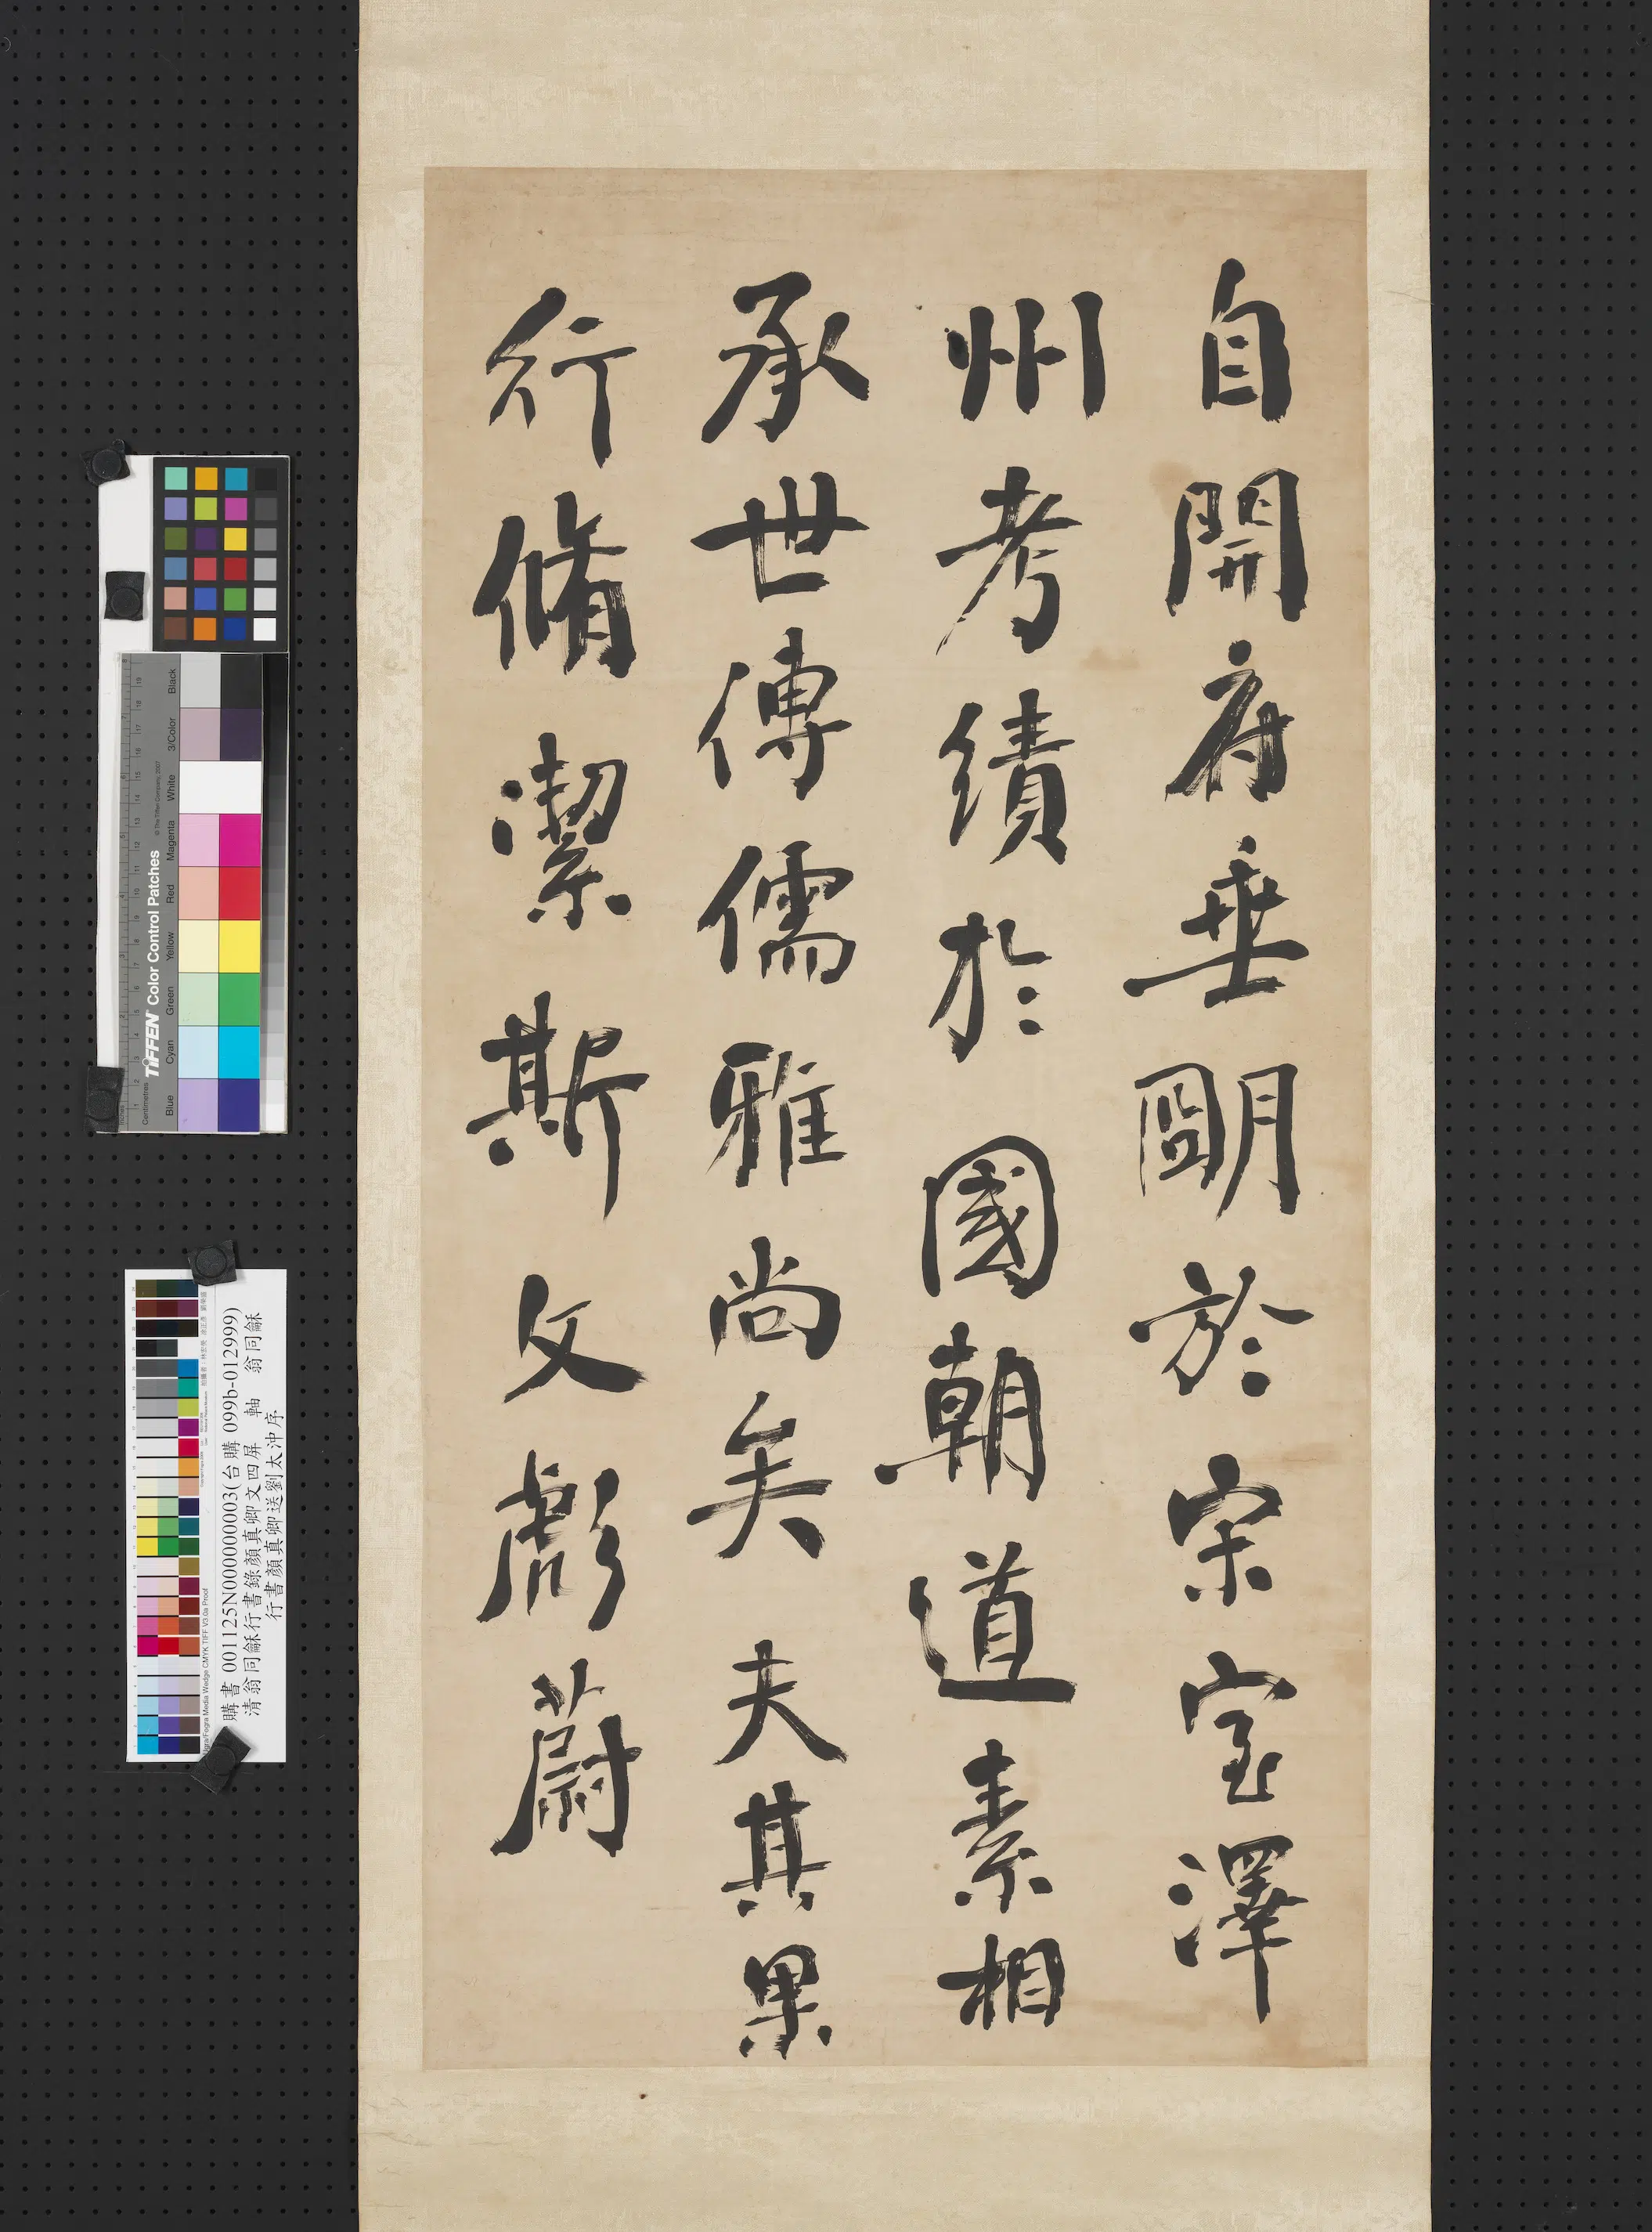 自開府垂朙於宋室澤
州考績於國朝道素相
承世傳儒雅尚矣夫其果
行脩潔斯文彪蔚
Black
3/Color
White
Magenta
Red
Yellow
Green
Cyan
Blue
TIFFEN Color Control Patches
© The Tiffen Company, 2007
Centimetres
購書 001125N000000003(台購 099b-012999)
清翁同龢行書錄顏真卿文四屏 軸 翁同龢
行書顏真卿送劉太沖序